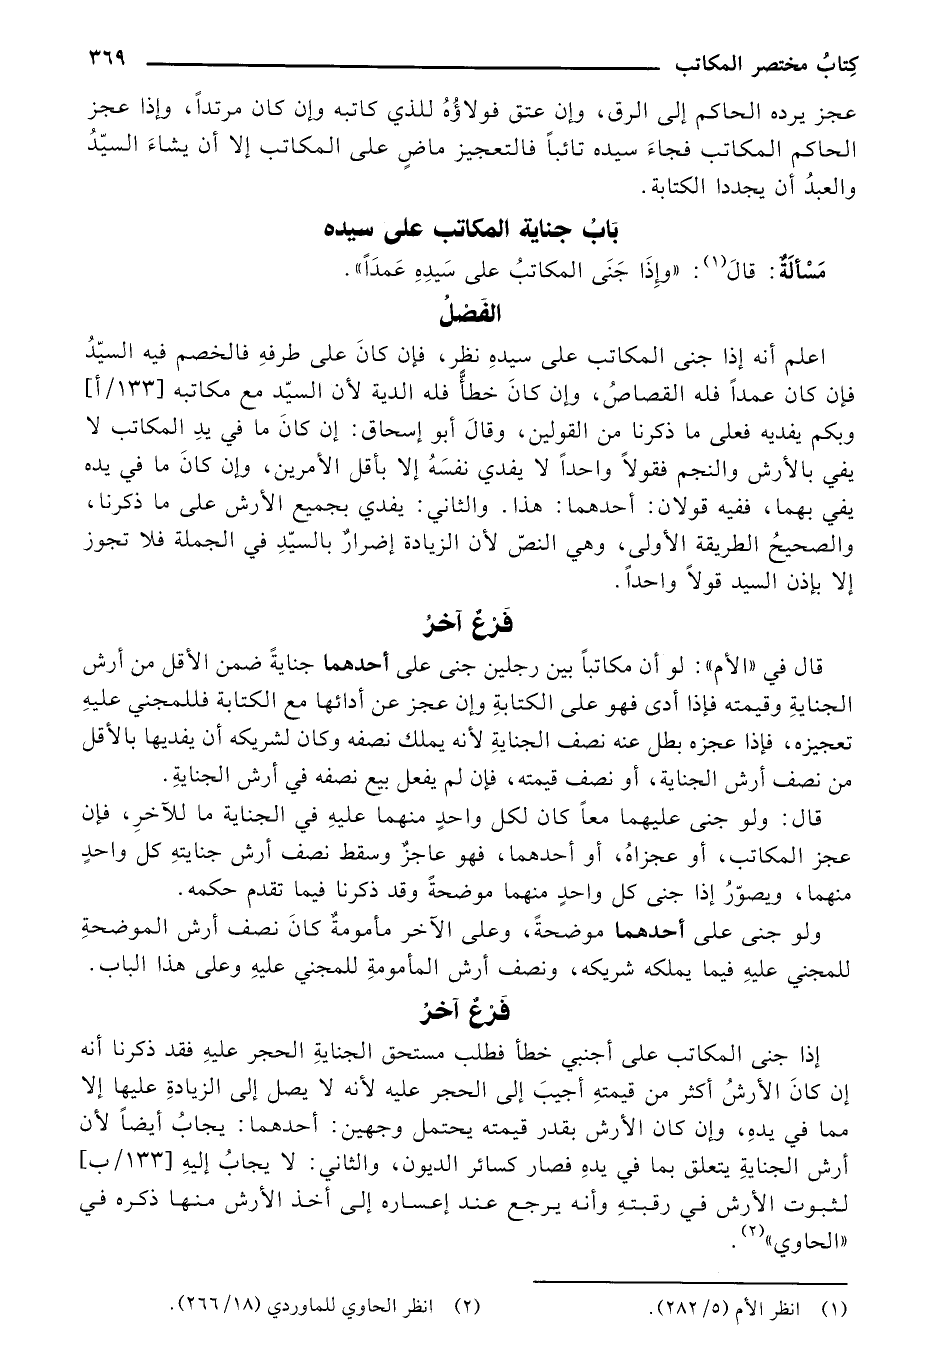 كِتابُ مختصر المكاتب ٣٦٩
عجز يرده الحاكم إلى الرق، وإن عتق فولاؤُهُ للذي كاتبه وإن كان مرتداً، وإذا عجز
الحاكم المكاتب فجاءَ سيده تائباً فالتعجيز ماضٍ على المكاتب إلا أن يشاءَ السيّدُ
والعبدُ أن يجددا الكتابة.
بَابُ جناية المكاتب على سيده
مَسْأَلَةٌ: قالَ(١): «وإِذَا جَنَى المكاتبُ على سَيدِهِ عَمدَاً».
الفَصْلُ
اعلم أنه إذا جنى المكاتب على سيدهِ نظر، فإن كانَ على طرفهِ فالخصم فيه السيّدُ
فإن كان عمداً فله القصاصُ، وإن كانَ خطأً فله الدية لأن السيّد مع مكاتبه [١٣٣/أ]
وبكم يفديه فعلى ما ذكرنا من القولين، وقالَ أبو إسحاق: إن كانَ ما في يدِ المكاتب لا
يفي بالأرش والنجم فقولاً واحداً لا يفدي نفسَهُ إلا بأقل الأمرين، وإن كانَ ما في يده
يفي بهما، ففيه قولان: أحدهما: هذا. والثاني: يفدي بجميع الأرش على ما ذكرنا،
والصحيحُ الطريقة الأولى، وهي النصّ لأن الزيادة إضرارٌ بالسيّدِ في الجملة فلا تجوز
إلا بإذن السيد قولاً واحداً.
فَرْعٌ آخرُ
قال في «الأم»: لو أن مكاتباً بين رجلين جنى على أحدهما جنايةً ضمن الأقل من أرش
الجنايةِ وقيمته فإذا أدى فهو على الكتابةِ وإن عجز عن أدائها مع الكتابة فللمجني عليهِ
تعجيزه، فإذا عجزه بطل عنه نصف الجنايةِ لأنه يملك نصفه وكان لشريكه أن يفديها بالأقل
من نصف أرش الجناية، أو نصف قيمته، فإن لم يفعل بيع نصفه في أرش الجنايةِ.
قال: ولو جنى عليهما معاً كان لكل واحدٍ منهما عليهِ في الجناية ما للآخرِ، فإن
عجز المكاتب، أو عجزاهُ، أو أحدهما، فهو عاجزٌ وسقط نصف أرش جنايتهِ كل واحدٍ
منهما، ويصوّرُ إذا جنى كل واحدٍ منهما موضحةً وقد ذكرنا فيما تقدم حكمه.
ولو جنى على أحدهما موضحةً، وعلى الآخر مأمومةٌ كانَ نصف أرش الموضحةِ
للمجني عليهِ فيما يملكه شريكه، ونصف أرش المأمومةِ للمجني عليهِ وعلى هذا الباب.
فَرْعٌ آخرُ
إذا جنى المكاتب على أجنبي خطأ فطلب مستحق الجنايةِ الحجر عليهِ فقد ذكرنا أنه
إن كانَ الأرشُ أكثر من قيمتهِ أجيبَ إلى الحجر عليه لأنه لا يصل إلى الزيادةِ عليها إلا
مما في يدهِ، وإن كان الأرش بقدر قيمته يحتمل وجهين: أحدهما: يجابُ أيضاً لأن
أرش الجنايةِ يتعلق بما في يدهِ فصار كسائر الديون، والثاني: لا يجابُ إليهِ [١٣٣/ب]
لثبوت الأرش في رقبتهِ وأنه يرجع عند إعساره إلى أخذ الأرش منها ذكره في
«الحاوي»(٢).
(١) انظر الأم (٥/ ٢٨٢).
(٢) انظر الحاوي للماوردي (١٨/ ٢٦٦).